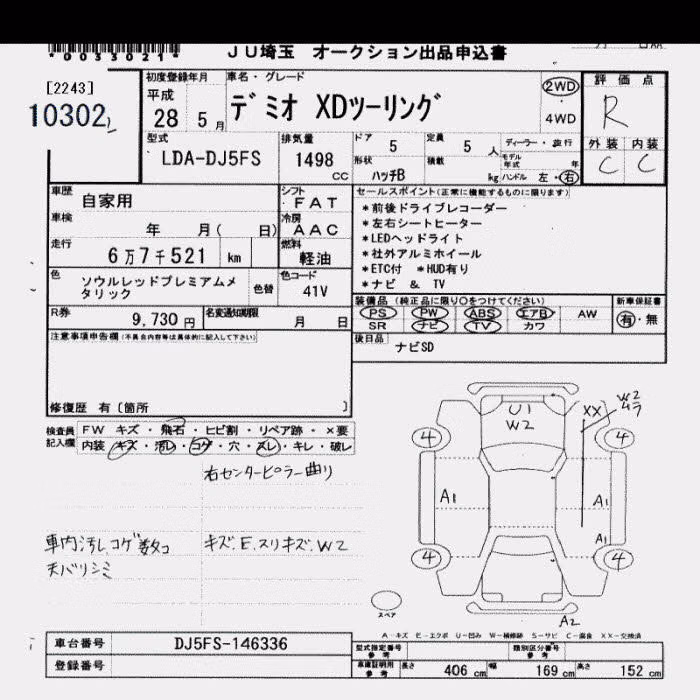 *0033021*
JU埼玉 オークション出品申込書
[2243]
10302
初度登録年月
平成
28 5月
車名・グレード
デミオ XDツーリング
2WD
4WD
評価点
R
型式
LDA-DJ5FS
排気量
1498 cc
ドア
5
定員
5 人
ディーラー・並行
モデル年式 年
形状
ハッチB
積載 kg
ハンドル 左・右
外装 内装
C C
車歴
自家用
車検
年 月( 日)
走行
6万7千521 km
シフト
FAT
冷房
AAC
燃料
軽油
色
ソウルレッドプレミアムメ
タリック
色替
色コード
41V
R券
9,730 円
名変通知期限
月 日
セールスポイント(正常に機能するものに限ります)
*前後ドライブレコーダー
*左右シートヒーター
*LEDヘッドライト
*社外アルミホイール
*ETC付 *HUD有り
*ナビ & TV
装備品 (純正品に限り○をつけてください)
PS PW ABS エアB AW
SR ナビ TV カワ
新車保証書
有・無
後日品
ナビSD
注意事項申告欄(不具合内容等は具体的に記入して下さい)
修復歴 有〔箇所 〕
検査員
記入欄
FW キズ・飛石・ヒビ割・リペア跡・×要
内装 キズ・汚レ・コゲ・穴・スレ・キレ・破レ
右センターピラー曲り
車内汚レ、コゲ数タコ
天バリシミ
キズ、E、スリキズ、W2
U1
W2
XX
W2
4
4
4
4
A1
A1
A1
A2
スペア
A-キズ E-エクボ U-凹み W-補修跡 S-サビ C-腐食 XX-交換済
車台番号
DJ5FS-146336
登録番号
型式指定番号
参考
類別区分番号
参考
車庫証明用
参考
長さ 406 cm 幅 169 cm 高さ 152 cm